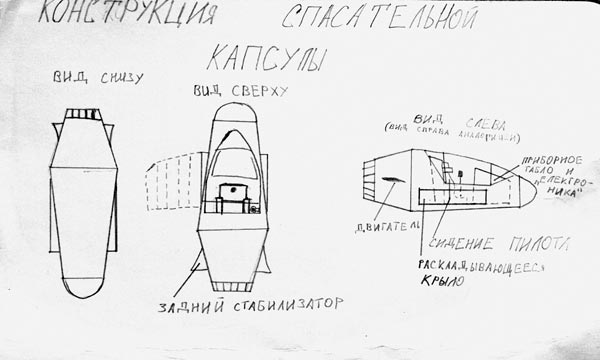 КОНСТРУКЦИЯ СПАСАТЕЛЬНОЙ
КАПСУЛЫ
ВИД СНИЗУ
ВИД СВЕРХУ
ВИД СЛЕВА
(ВИД СПРАВА АНАЛОГИЧЕН)
ПРИБОРНОЕ
ТАБЛО И
„ЕЛЕКТРО-
НИКА“
ДВИГАТЕЛЬ
СИДЕНИЕ ПИЛОТА
РАСКЛАДЫВАЮЩЕЕСЯ
КРЫЛО
ЗАДНИЙ СТАБИЛИЗАТОР